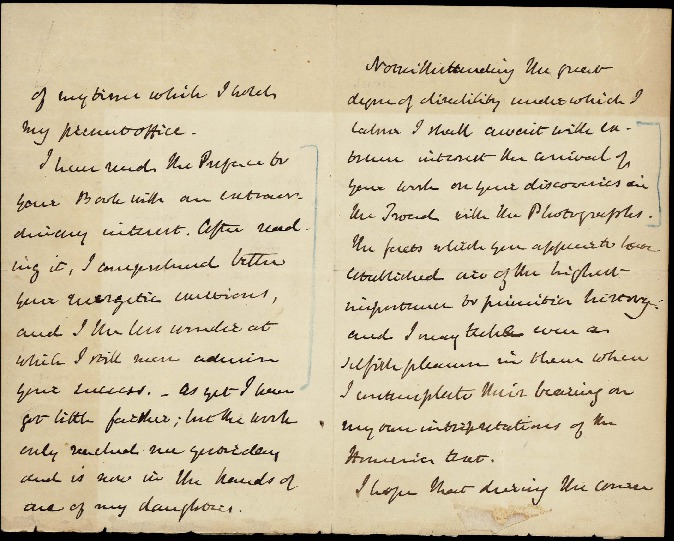 of my time which I hold
my present office.
I have read the Preface to
your Book with an extraor-
dinary interest. After read-
ing it, I comprehend better
your energetic
and I the less wonder at
which I still more admire
your success. – As yet I have
got little farther; but the work
only reached me yesterday
and is now in the hands of
one of my daughters.
Notwithstanding the great
degree of disability under which I
labour I shall await with ex-
treme interest the arrival of
your work on your discoveries in
the Troad with the Photographs.
The facts which you appear to have
established are of the highest
importance to primitive history:
and I may take even a
selfish pleasure in them when
I contemplate their bearing on
my own interpretations of the
Homeric text.
I hope that during the course